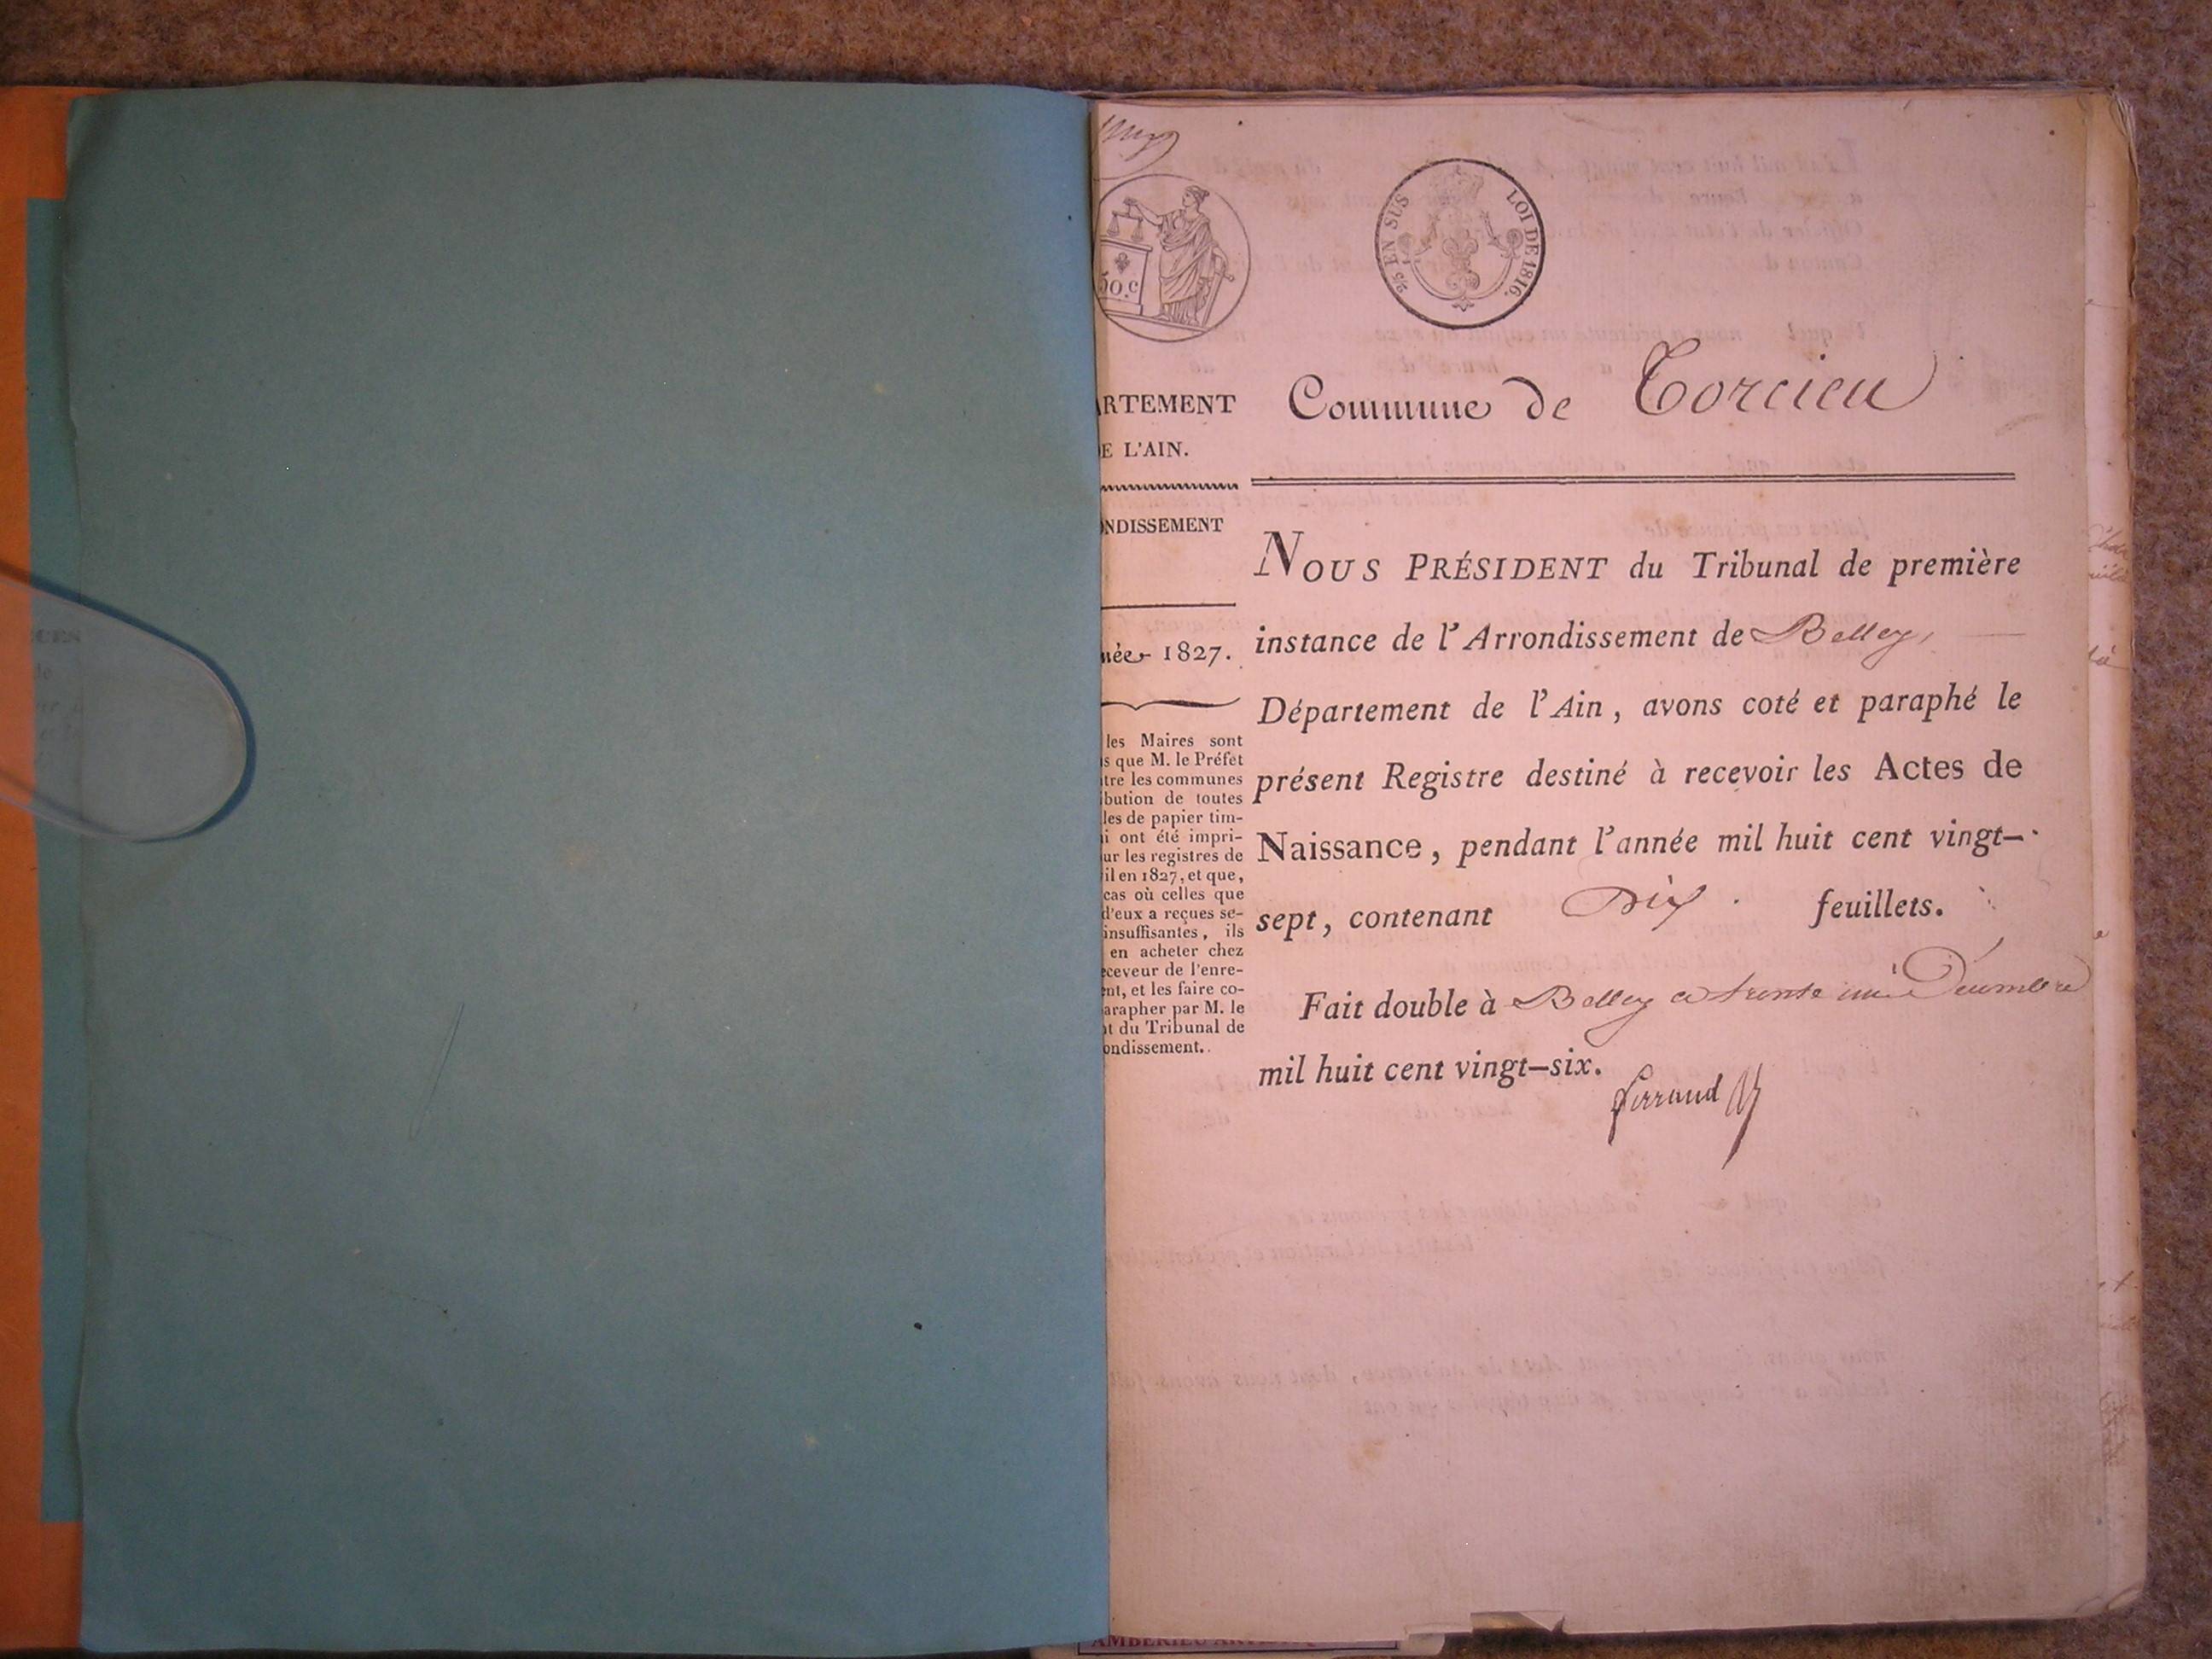 50.c
2/5 EN SUS LOI DE 1816.
RTEMENT
E L'AIN.
NDISSEMENT
née 1827.
les Maires sont
s que M. le Préfet
tre les communes
bution de toutes
les de papier tim-
i ont été impri-
ur les registres de
il en 1827, et que,
cas où celles que
d'eux a reçues se-
insuffisantes, ils
en acheter chez
eceveur de l'enre-
nt, et les faire co-
arapher par M. le
t du Tribunal de
ondissement.
Commune de Torcieu
NOUS PRÉSIDENT du Tribunal de première
instance de l'Arrondissement de Belley,
Département de l'Ain, avons coté et paraphé le
présent Registre destiné à recevoir les Actes de
Naissance, pendant l'année mil huit cent vingt-
sept, contenant Dix feuillets.
Fait double à Belley ce trente un Décembre
mil huit cent vingt-six.
AMBERIEU